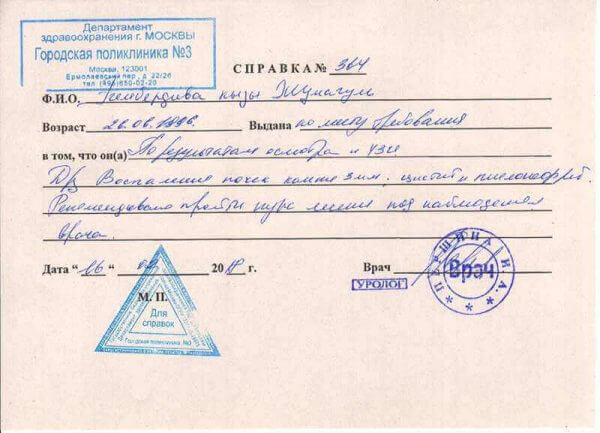 Департамент
здравоохранения г. МОСКВЫ
Городская поликлиника №3
Москва, 123001
Ермолаевский пер., д. 22/26
тел (495)650-02-20
СПРАВКА № 364
Ф.И.О. кызы
Возраст 26.06.1996. Выдана по месту требования
в том, что он(а) По результатам осмотра и УЗИ
Д/з Воспаление почек камни 3 мм. цистит и пиелонефрит.
Рекомендовано пройти курс лечения под наблюдением
врача.
Дата "16" 20 г. Врач
М. П.
УРОЛОГ
ПЕРШИНА И.А.
Врач
Для
справок
Городская поликлиника №3